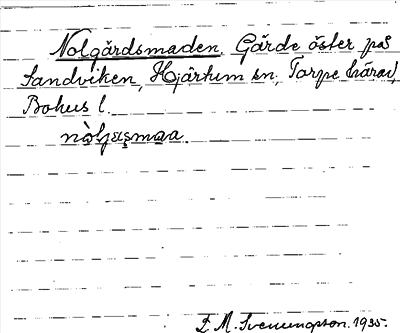 Nolgärdsmaden. Gärde öster på
Sandviken, Hjärtum sn, Torpe härad,
Bohus l.
E. M. Svenungsson. 1935.